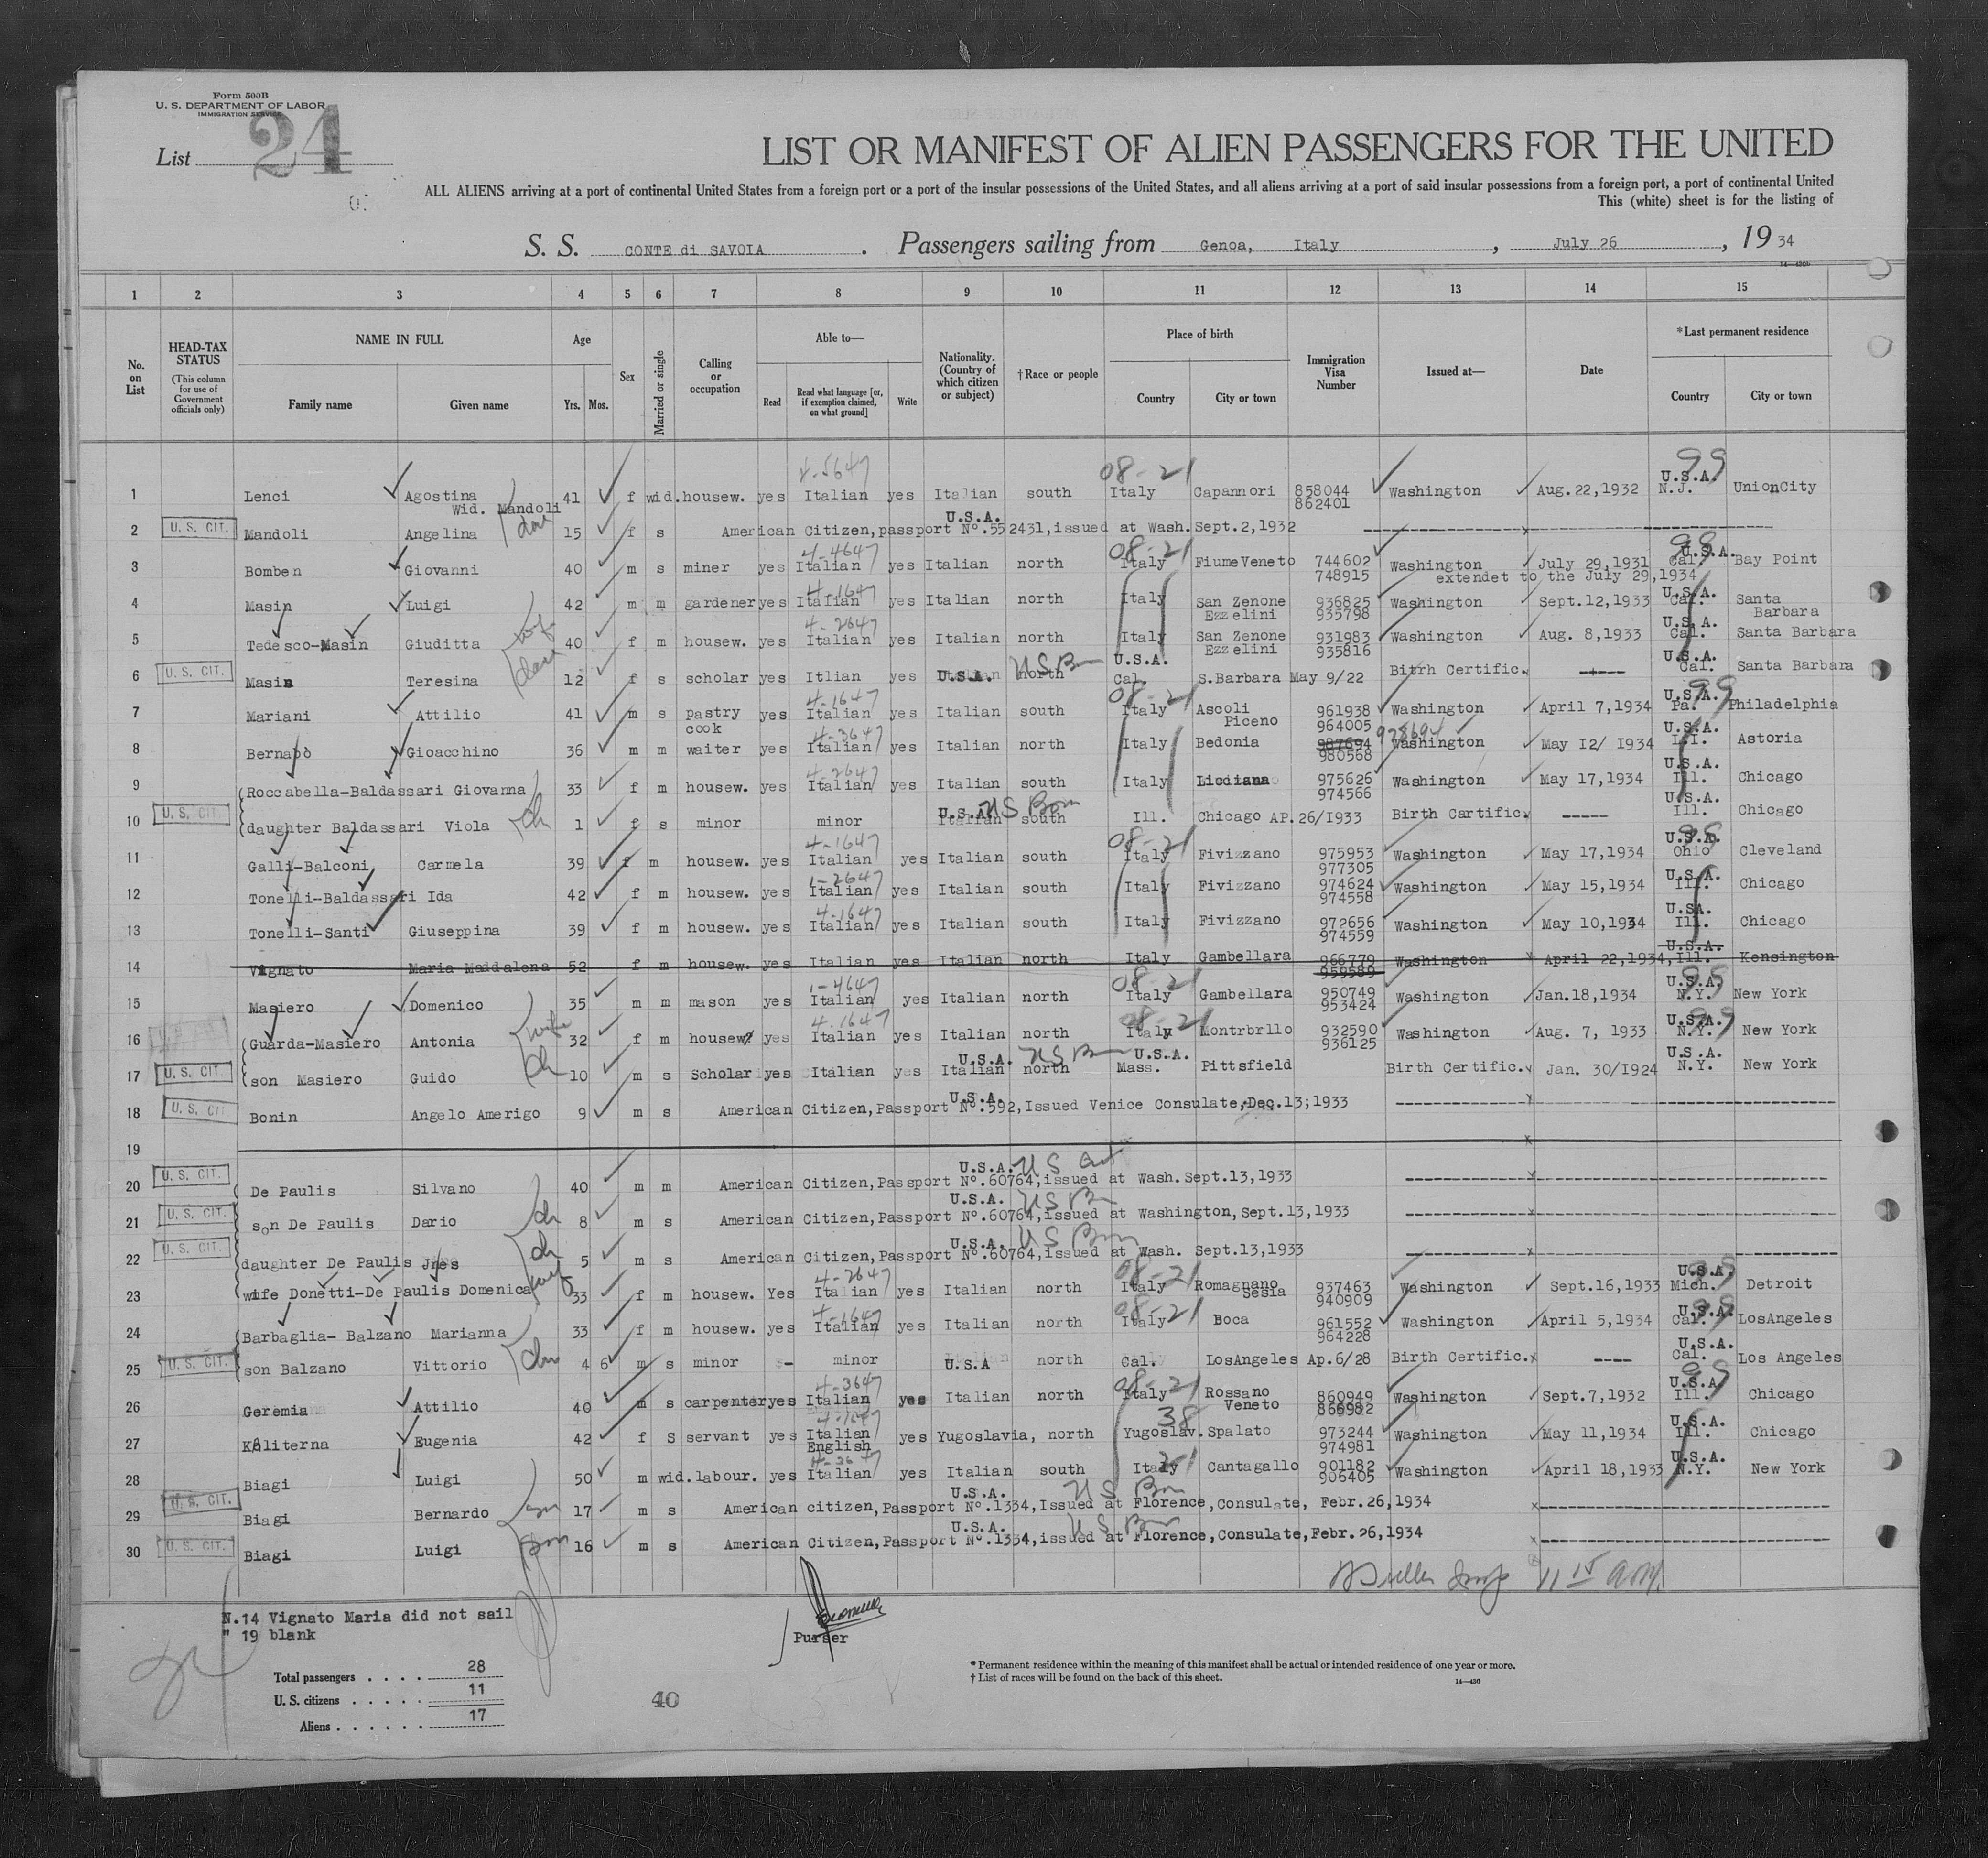 Form 500B
U. S. DEPARTMENT OF LABOR
IMMIGRATION SERVICE
List 24
LIST OR MANIFEST OF ALIEN PASSENGERS FOR THE UNITED
ALL ALIENS arriving at a port of continental United States from a foreign port or a port of the insular possessions of the United States, and all aliens arriving at a port of said insular possessions from a foreign port, a port of continental United
This (white) sheet is for the listing of
S. S. CONTE di SAVOIA. Passengers sailing from Genoa, Italy, July 26, 1934
1 2 3 4 5 6 7 8 9 10 11 12 13 14 15
No. on List
HEAD-TAX STATUS (This column for use of Government officials only)
NAME IN FULL Family name Given name
Age Yrs. Mos.
Sex
Married or single
Calling or occupation
Able to— Read Read what language [or, if exemption claimed, on what ground] Write
Nationality. (Country of which citizen or subject)
†Race or people
Place of birth Country City or town
Immigration Visa Number
Issued at—
Date
*Last permanent residence Country City or town
1 Lenci Agostina Wid. Mandoli 41 f wid. housew. yes 4-5647 Italian yes Italian south 08-21 Italy Capannori 858044 862401 Washington Aug. 22,1932 99 U.S.A. N.J. UnionCity
2 U. S. CIT. Mandoli Angelina 15 f s American Citizen,passport Nº.552431,issued at Wash.Sept.2,1932 U.S.A.
3 Bomben Giovanni 40 m s miner yes 4-4647 Italian yes Italian north 08-21 Italy FiumeVeneto 744602 748915 Washington July 29,1931 extendet to the July 29,1934 98 U.S.A. Cal. Bay Point
4 Masin Luigi 42 m m gardener yes 4-1647 Italian yes Italian north Italy San Zenone Ezzelini 936825 935798 Washington Sept.12,1933 U.S.A. Cal. Santa Barbara
5 Tedesco-Masin Giuditta wife 40 f m housew. yes 4-2647 Italian yes Italian north Italy San Zenone Ezzelini 931983 935816 Washington Aug. 8,1933 U.S.A. Cal. Santa Barbara
6 U. S. CIT. Masin Teresina 12 f s scholar yes Itlian yes U.S.A. north US Bn U.S.A. Cal. S.Barbara May 9/22 Bitrh Certific. U.S.A. Cal. Santa Barbara
7 Mariani Attilio 41 m s pastry cook yes 4-1647 Italian yes Italian south 08-21 Italy Ascoli Piceno 961938 964005 Washington April 7,1934 99 U.S.A. Pa. Philadelphia
8 Bernabò Gioacchino 36 m m waiter yes 4-3647 Italian yes Italian north Italy Bedonia 987694 978694 980568 Washington May I2/ I934 U.S.A. L.I. Astoria
9 Roccabella-Baldassari Giovanna 33 f m housew. yes 4-2647 Italian yes Italian south Italy Licciana 975626 974566 Washington May 17,1934 U.S.A. Ill. Chicago
10 U. S. CIT. daughter Baldassari Viola ch 1 f s minor minor U.S.A. Italian US Born south Ill. Chicago AP.26/I933 Birth Cartific. ----- U.S.A. Ill. Chicago
11 Galli-Balconi Carmela 39 f m housew. yes 4-1647 Italian yes Italian south 08-21 Italy Fivizzano 975953 977305 Washington May 17,1934 98 U.S.A. Ohio Cleveland
12 Tonelli-Baldassari Ida 42 f m housew. yes 1-2647 Italian yes Italian south Italy Fivizzano 974624 974558 Washington May 15,1934 U.S.A. Ill. Chicago
13 Tonelli-Santi Giuseppina 39 f m housew. yes 4-1647 Italian yes Italian south Italy Fivizzano 972656 974559 Washington May 10,1934 U.SA. Ill. Chicago
14 Vignato Maria Maddalena 52 f m housew. yes Italian yes Italian north Italy Gambellara 966779 959589 Washington April 22,1934, U.S.A. Ill. Kensington
15 Masiero Domenico 35 m m mason yes 1-4647 Italian yes Italian north 08-21 Italy Gambellara 950749 953424 Washington Jan.18,1934 U.S.A. N.Y. New York
16 Guarda-Masiero Antonia wife 32 f m housew. yes 4-1647 Italian yes Italian north 08-21 Italy Montrbrllo 932590 936125 Washington Aug. 7, 1933 99 U.S.A. N.Y. New York
17 U. S. CIT. son Masiero Guido ch 10 m s Scholar yes Italian yes U.S.A. Italian US Bn north U.S.A. Mass. Pittsfield Birth Certific. Jan. 30/I924 U.S.A. N.Y. New York
18 U. S. CIT Bonin Angelo Amerigo 9 m s U.S.A. American Citizen,Passport Nº.592,Issued Venice Consulate,Dec.13;1933
19
20 U. S. CIT. De Paulis Silvano 40 m m U.S.A. US Cit American Citizen,Passport Nº.60764,issued at Wash.Sept.13,1933
21 U. S. CIT. son De Paulis Dario ch 8 m s U.S.A. US Bn American Citizen,Passport Nº.60764,issued at Washington,Sept.13,1933
22 U. S. CIT. daughter De Paulis Jnes ch 5 m s U.S.A. US Born American Citizen,Passport Nº.60764,issued at Wash. Sept.13,1933
23 wife Donetti-De Paulis Domenica wife 33 f m housew. Yes 4-2647 Italian yes Italian north 08-21 Italy Romagnano Sesia 937463 940909 Washington Sept.16,1933 U.S.A. Mich. Detroit
24 Barbaglia- Balzano Marianna 33 f m housew. yes 4-1647 Italian yes Italian north 08-21 Italy Boca 961552 964228 Washington April 5,1934 98 U.S.A. Cal. LosAngeles
25 U. S. CIT. son Balzano Vittorio 4 6 m s minor - minor U.S.A north Cal. LosAngeles Ap.6/28 Birth Certific. ---- U.S.A. Cal. Los Angeles
26 Geremia Attilio 40 m s carpenter yes 4-3647 Italian yes Italian north 08-21 Italy Rossano Veneto 860949 866982 Washington Sept.7,1932 99 U.S.A Ill. Chicago
27 Kaliterna Eugenia 42 f S servant yes 4-1647 Italian English yes Yugoslavia, north 38 Yugoslav. Spalato 973244 974981 Washington May 11,1934 U.S.A. Ill. Chicago
28 Biagi Luigi 50 m wid. labour. yes 4-3647 Italian yes Italian south 21 Italy Cantagallo 901182 906405 Washington April 18,1933 U.S.A. N.Y. New York
29 U. S. CIT. Biagi Bernardo son 17 m s U.S.A. US Born American citizen,Passport Nº.1334,Issued at Florence,Consulate, Febr.26,1934
30 U. S. CIT. Biagi Luigi son 16 m s U.S.A. US Born American Citizen,Passport Nº.1334,issued at Florence,Consulate,Febr.26,1934
11 15 a.m.
N.14 Vignato Maria did not sail
" 19 blank
Purser
Total passengers . . . . 28
U. S. citizens . . . . . 11
Aliens . . . . . . 17
40
* Permanent residence within the meaning of this manifest shall be actual or intended residence of one year or more.
† List of races will be found on the back of this sheet.
14—430